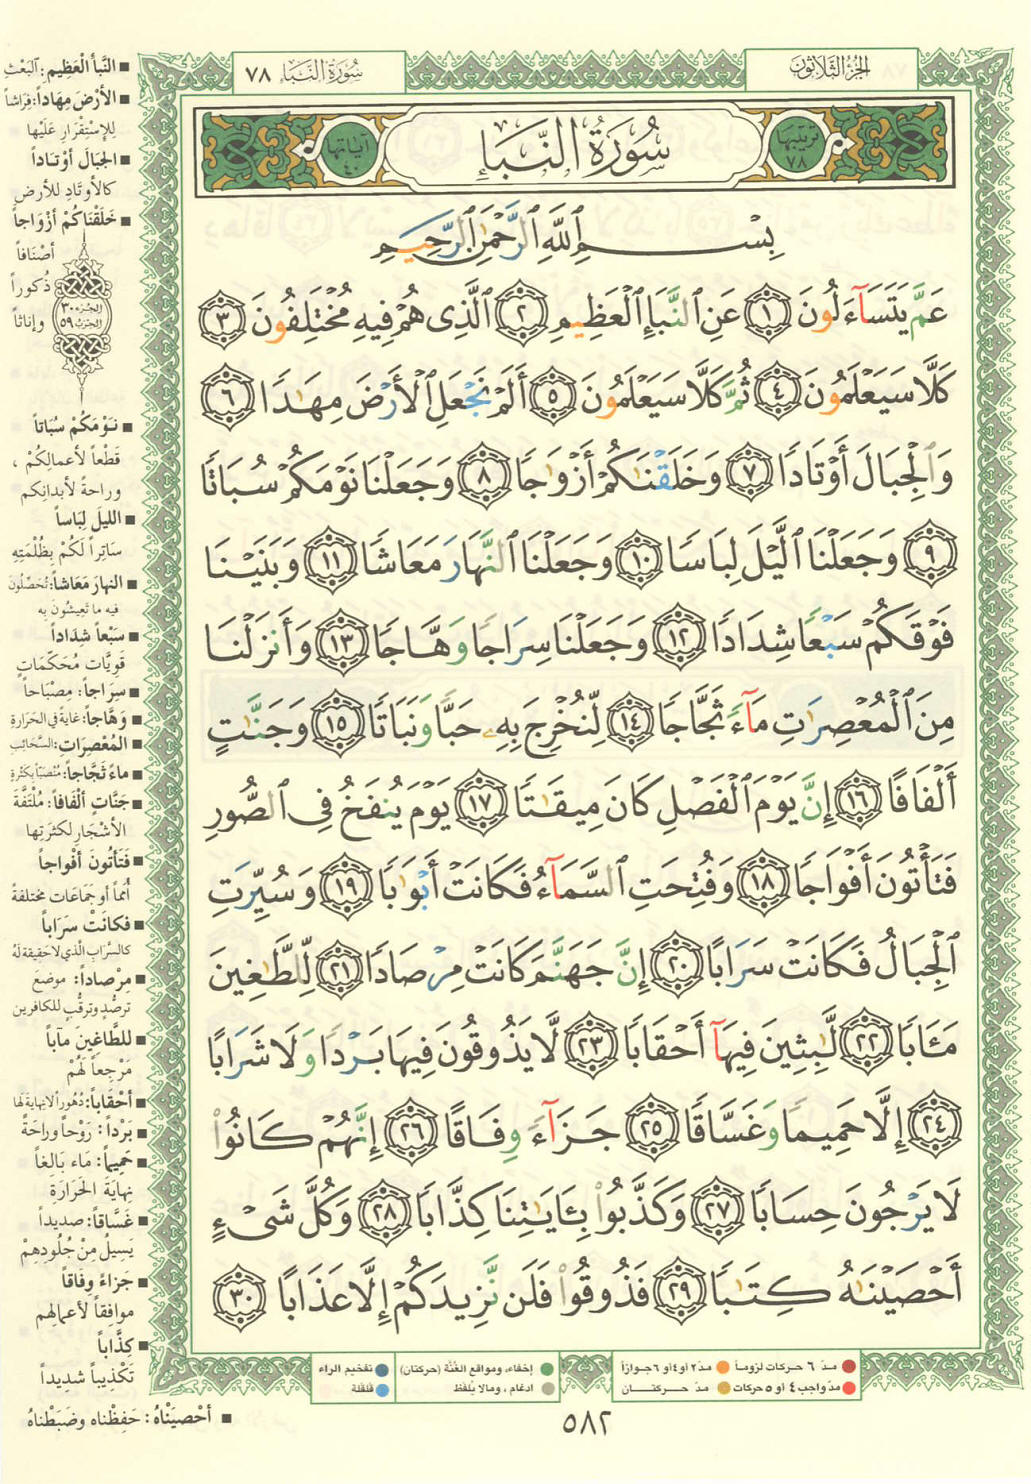 الجزء الثلاثون
سورة النبإ ٧٨
ترتيبها ٧٨
سُورَةُ النَّبَإِ
آياتها ٤٠
بِسْمِ ٱللَّهِ ٱلرَّحْمَٰنِ ٱلرَّحِيمِ
عَمَّ يَتَسَآءَلُونَ ١ عَنِ ٱلنَّبَإِ ٱلْعَظِيمِ ٢ ٱلَّذِى هُمْ فِيهِ مُخْتَلِفُونَ ٣
كَلَّا سَيَعْلَمُونَ ٤ ثُمَّ كَلَّا سَيَعْلَمُونَ ٥ أَلَمْ نَجْعَلِ ٱلْأَرْضَ مِهَٰدًا ٦
وَٱلْجِبَالَ أَوْتَادًا ٧ وَخَلَقْنَٰكُمْ أَزْوَٰجًا ٨ وَجَعَلْنَا نَوْمَكُمْ سُبَاتًا
٩ وَجَعَلْنَا ٱلَّيْلَ لِبَاسًا ١٠ وَجَعَلْنَا ٱلنَّهَارَ مَعَاشًا ١١ وَبَنَيْنَا
فَوْقَكُمْ سَبْعًا شِدَادًا ١٢ وَجَعَلْنَا سِرَاجًا وَهَّاجًا ١٣ وَأَنزَلْنَا
مِنَ ٱلْمُعْصِرَٰتِ مَآءً ثَجَّاجًا ١٤ لِّنُخْرِجَ بِهِۦ حَبًّا وَنَبَاتًا ١٥ وَجَنَّٰتٍ
أَلْفَافًا ١٦ إِنَّ يَوْمَ ٱلْفَصْلِ كَانَ مِيقَٰتًا ١٧ يَوْمَ يُنفَخُ فِى ٱلصُّورِ
فَتَأْتُونَ أَفْوَاجًا ١٨ وَفُتِحَتِ ٱلسَّمَآءُ فَكَانَتْ أَبْوَٰبًا ١٩ وَسُيِّرَتِ
ٱلْجِبَالُ فَكَانَتْ سَرَابًا ٢٠ إِنَّ جَهَنَّمَ كَانَتْ مِرْصَادًا ٢١ لِّلطَّٰغِينَ
مَـَٔابًا ٢٢ لَّٰبِثِينَ فِيهَآ أَحْقَابًا ٢٣ لَّا يَذُوقُونَ فِيهَا بَرْدًا وَلَا شَرَابًا
٢٤ إِلَّا حَمِيمًا وَغَسَّاقًا ٢٥ جَزَآءً وِفَاقًا ٢٦ إِنَّهُمْ كَانُوا۟
لَا يَرْجُونَ حِسَابًا ٢٧ وَكَذَّبُوا۟ بِـَٔايَٰتِنَا كِذَّابًا ٢٨ وَكُلَّ شَىْءٍ
أَحْصَيْنَٰهُ كِتَٰبًا ٢٩ فَذُوقُوا۟ فَلَن نَّزِيدَكُمْ إِلَّا عَذَابًا ٣٠
■ النَّبَأِ الْعَظِيمِ: البَعْثِ
■ الأَرْضَ مِهَاداً: فِرَاشاً
لِلاِسْتِقْرَارِ عَلَيْها
■ الجِبَالَ أَوْتَاداً
كالأوتَادِ للأرضِ
■ خَلَقْنَاكُمْ أَزْوَاجاً
أصْنَافاً
ذُكوراً
وإناثاً
الجزء ٣٠
الحزب ٥٩
■ نَوْمَكُمْ سُبَاتاً
قَطْعاً لأعمالِكُمْ ،
وراحةً لأبدانِكم
■ الليلَ لِبَاساً
سَاتِراً لَكُمْ بِظُلْمَتِهِ
■ النهارَ مَعَاشاً: تُحَصِّلُونَ
فيه ما تَعِيشُونَ به
■ سَبْعاً شِدَاداً
قَوِيَّاتٍ مُحْكَمَاتٍ
■ سِرَاجاً: مِصْبَاحاً
■ وَهَّاجاً: غاية في الحَرَارةِ
■ المُعْصِرَاتِ: السَّحَائِبِ
■ ماءً ثَجَّاجاً: مُنْصَبّاً بكَثْرةٍ
■ جَنَّاتٍ أَلْفَافاً: مُلْتَفَّةَ
الأشْجَارِ لكثرَتِها
■ فَتَأْتُونَ أَفْواجاً
أُمَماً أو جَمَاعَاتٍ مختلفةً
■ فكانَتْ سَرَاباً
كالسَّرَابِ الَّذي لا حَقِيقةَ لَهُ
■ مِرْصاداً: موضعَ
ترصُّدٍ وترقُّبٍ للكافرين
■ للطَّاغِينَ مآباً
مَرْجِعاً لَهُمْ
■ أَحْقَاباً: دُهُوراً لا نِهايةَ لها
■ بَرْداً: رَوْحاً وراحَةً
■ حَمِيماً: مَاء بَالِغاً
نِهايَةَ الحَرَارَةِ
■ غَسَّاقاً: صديداً
يَسِيلُ مِنْ جُلُودِهِمْ
■ جَزَاءً وِفَاقاً
موافِقاً لأعمالِهم
■ كِذَّاباً
تَكْذِيباً شدِيداً
■ أحْصيْنَاهُ: حَفِظْناه وضَبَطْناهُ
مدّ ٦ حركات لزوماً مدّ ٢ أو ٤ أو ٦ جوازاً
مدّ واجب ٤ أو ٥ حركات مدّ حركتان
إخفاء، ومواقع الغُنَّة (حركتان)
ادغام ، ومالا يُلفظ
تفخيم الراء
قلقلة
٥٨٢